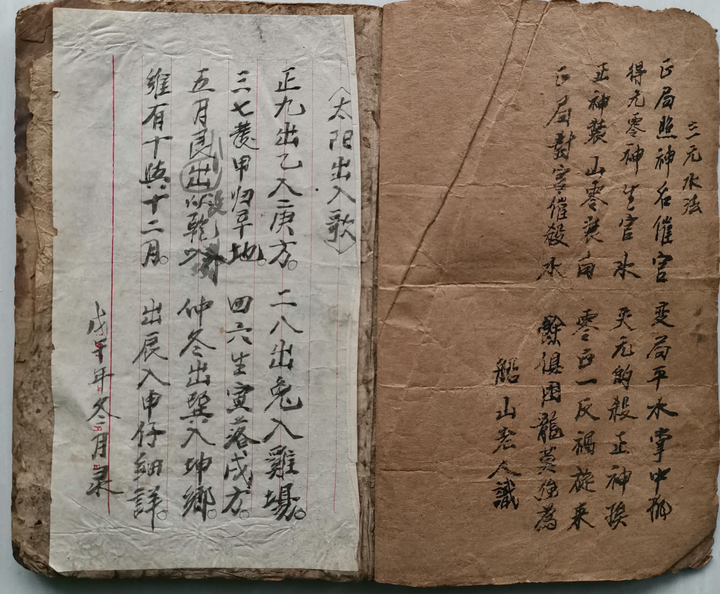 三元水法
正局照神名催官 变局平水掌中
得元零神生官水 失元的殺正神
正神装山零装向 零正一反禍旋来
正局對宫催殺水 餘俱囚龍莫強爲
船山老人識
〈太阳出入歌〉
正九出乙入庚方。二八出兔入雞場。
三七發甲归辛地。四六生寅落戌方。
五月艮出以乾 仲冬出巽入坤鄉。
維有十與十二月。出辰入甲仔細詳。
戊午年冬月录